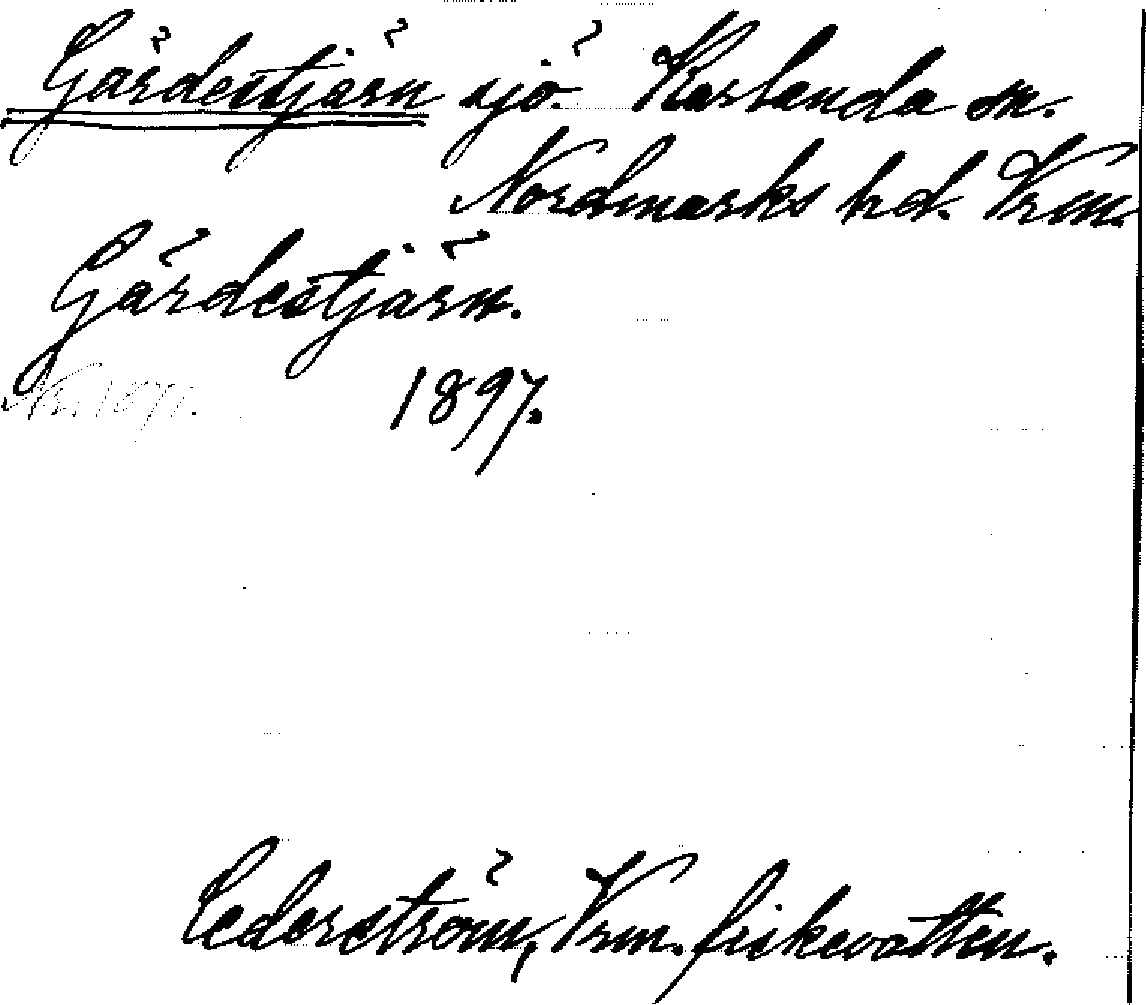 Gärdestjärn sjö. Karlanda sn.
Nordmarks hd. Vrm.
Gärdestjärn.
1897.
Cederström, Vrm. fiskevatten.